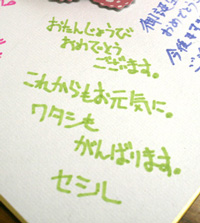 おたんじょうび
おめでとう
ございます。
これからもお元気に。
ワタシも
がんばります。
セシル
御誕生
おめでとう
今後も